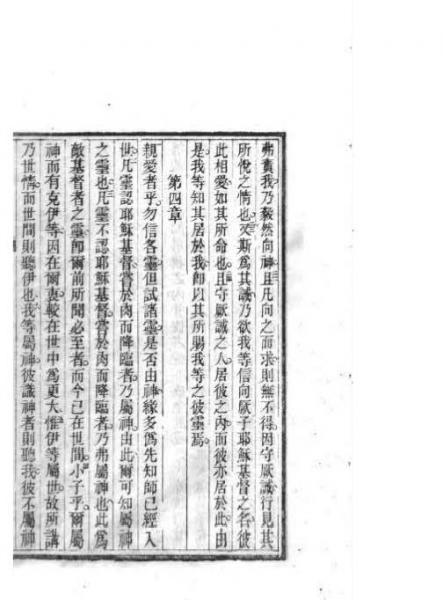 弗責我乃毅然向神且凡向之而求則無不得因守厥誡行見其
所悅之情也夫斯為其誡乃欲我等信向厥子耶穌基督之名彼
此相愛如其所命也且守厥誡之人居彼之內而彼亦居於此由
是我等知其居於我即以其所賜我等之彼靈焉
第四章
親愛者乎勿信各靈但試諸靈是否由神緣多偽先知師已經入
世凡靈認耶穌基督嘗於肉而降臨者乃屬神由此爾可知屬神
之靈也凡靈不認耶穌基督嘗於肉而降臨者乃弗屬神也此為
敵基督者之靈即爾前所聞必至者而今已在世間小子乎爾屬
神而有克伊等因在爾衷較在世中為更大惟伊等屬世故所講
乃世情而世間則聽伊也我等屬神彼識神者則聽我彼不屬神